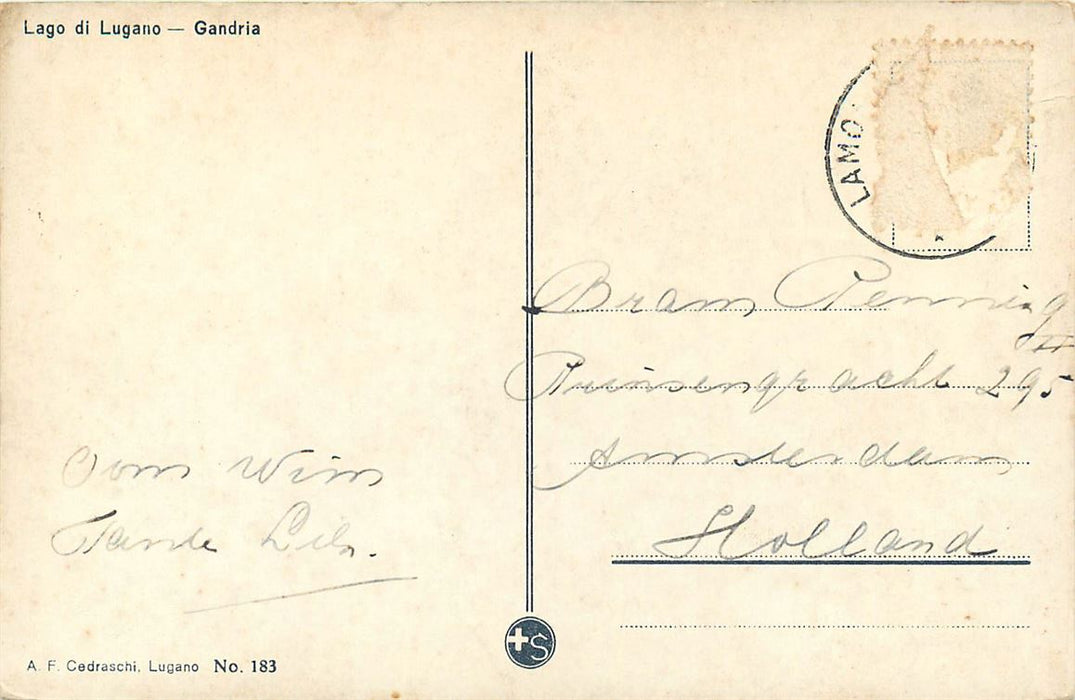 Lago di Lugano — Gandria
LAMO
Bram Penning
III
Prinsengracht 295
Amsterdam
Holland
Oom Wim
Tante Lila.
+S
A. F. Cedraschi, Lugano No. 183